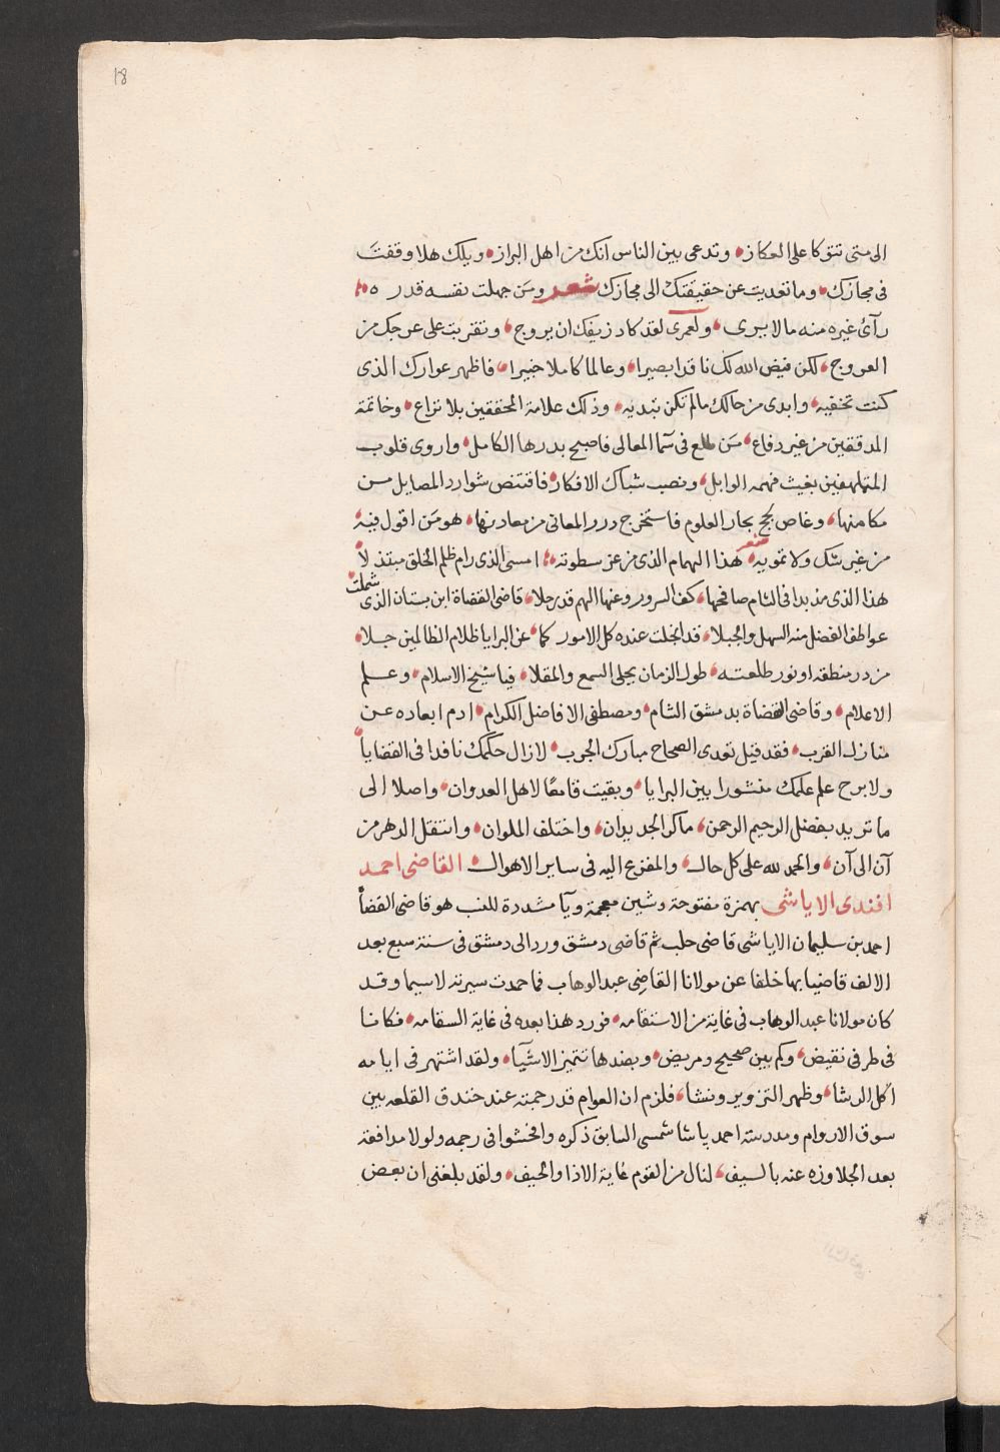 18
الى متى تتوكا على العكاز، وتدعى بين الناس انك من اهل البراز، ويلك هلا وقفت
فى مجازك، وما تعديت عن حقيقتك الى مجازك شعر ومن جهلت نفسه قدره
رآى غيره منه ما لا يرى، ولعمرى لقد كاد زيفك ان يروج، وتقربت على عرجك من
العروج، لكن قيض الله لك ناقدا بصيرا، وعالما كاملا خبيرا، فاظهر عوارك الذى
كنت تخفيه، وابدى من حالك ما لم تكن تبديه، وذلك علامة المحققين بلا نزاع، وخاتمة
المدققين من غير دفاع، من طلع فى سما المعالى فاصبح بدرها الكامل، واروى قلوب
المتلهفين بغيث فهمه الوابل، ونصب شباك الافكار فاقتنص شوارد المصايل من
مكامنها، وغاص لجج بحار العلوم فاستخرج درر المعانى من معادنها، هو من اقول فيه
من غير شك ولا تمويه، شعر هذا الهمام الذى من عز سطوته، امسى الذى رام ظلم الخلق مبتذلا
هذا الذى مذ بدا فى الشام صافحها، كف السرور وعنها الهم قد رحلا، قاضى القضاة ابن بستان الذى شملت
عواطف الفضل منه السهل والجبلا، قد انجلت عنده كل الامور كما، عن البرايا ظلام الظالمين جلا،
من در منطقه او نور طلعته، طول الزمان يحلى السمع والمقلا، فيا شيخ الاسلام، وعلم
الاعلام، وقاضى القضاة بدمشق الشام، ومصطفى الافاضل الكرام، ادم ابعاده عن
منازل القرب، فقد قيل تعدى الصحاح مبارك الجرب، لا زال حكمك نافدا فى القضايا
ولا برح علم علمك منشورا بين البرايا، وبقيت قامعا لاهل العدوان، واصلا الى
ما تريد بفضل الرحيم الرحمن، ما كر الجديدان، واختلف الملوان، وانتقل الدهر من
آن الى آن، والحمد لله على كل حال، والمفزع اليه فى ساير الاهوال، القاضى احمد
افندى الاياشى بهمزة مفتوحة وشين معجمة ويآ مشددة للنسب هو قاضى القضا
احمد بن سليمان الاياشى قاضى حلب ثم قاضى دمشق ورد الى دمشق فى سنة سبع بعد
الالف قاضيا بها خلفا عن مولانا القاضى عبد الوهاب فما حمدت سيرته لا سيما وقد
كان مولانا عبد الوهاب فى غاية من الاستقامه، فورد هذا بعده فى غاية السقامه، فكانا
فى طرفى نقيض، وكم بين صحيح ومريض، وبضدها تتميز الاشيآ، ولقد اشتهر فى ايامه
اكل الرشا، وظهر التزوير ونشا، فلزم ان العوام قد رجمته عند خندق القلعه بين
سوق الاروام ومدرسة احمد باشا شمسى السابق ذكره وافحشوا فى رجمه ولولا مدافعة
بعد الجلاوزه عنه بالسيف، لنال من القوم غاية الاذا والحيف، ولقد بلغنى ان بعض